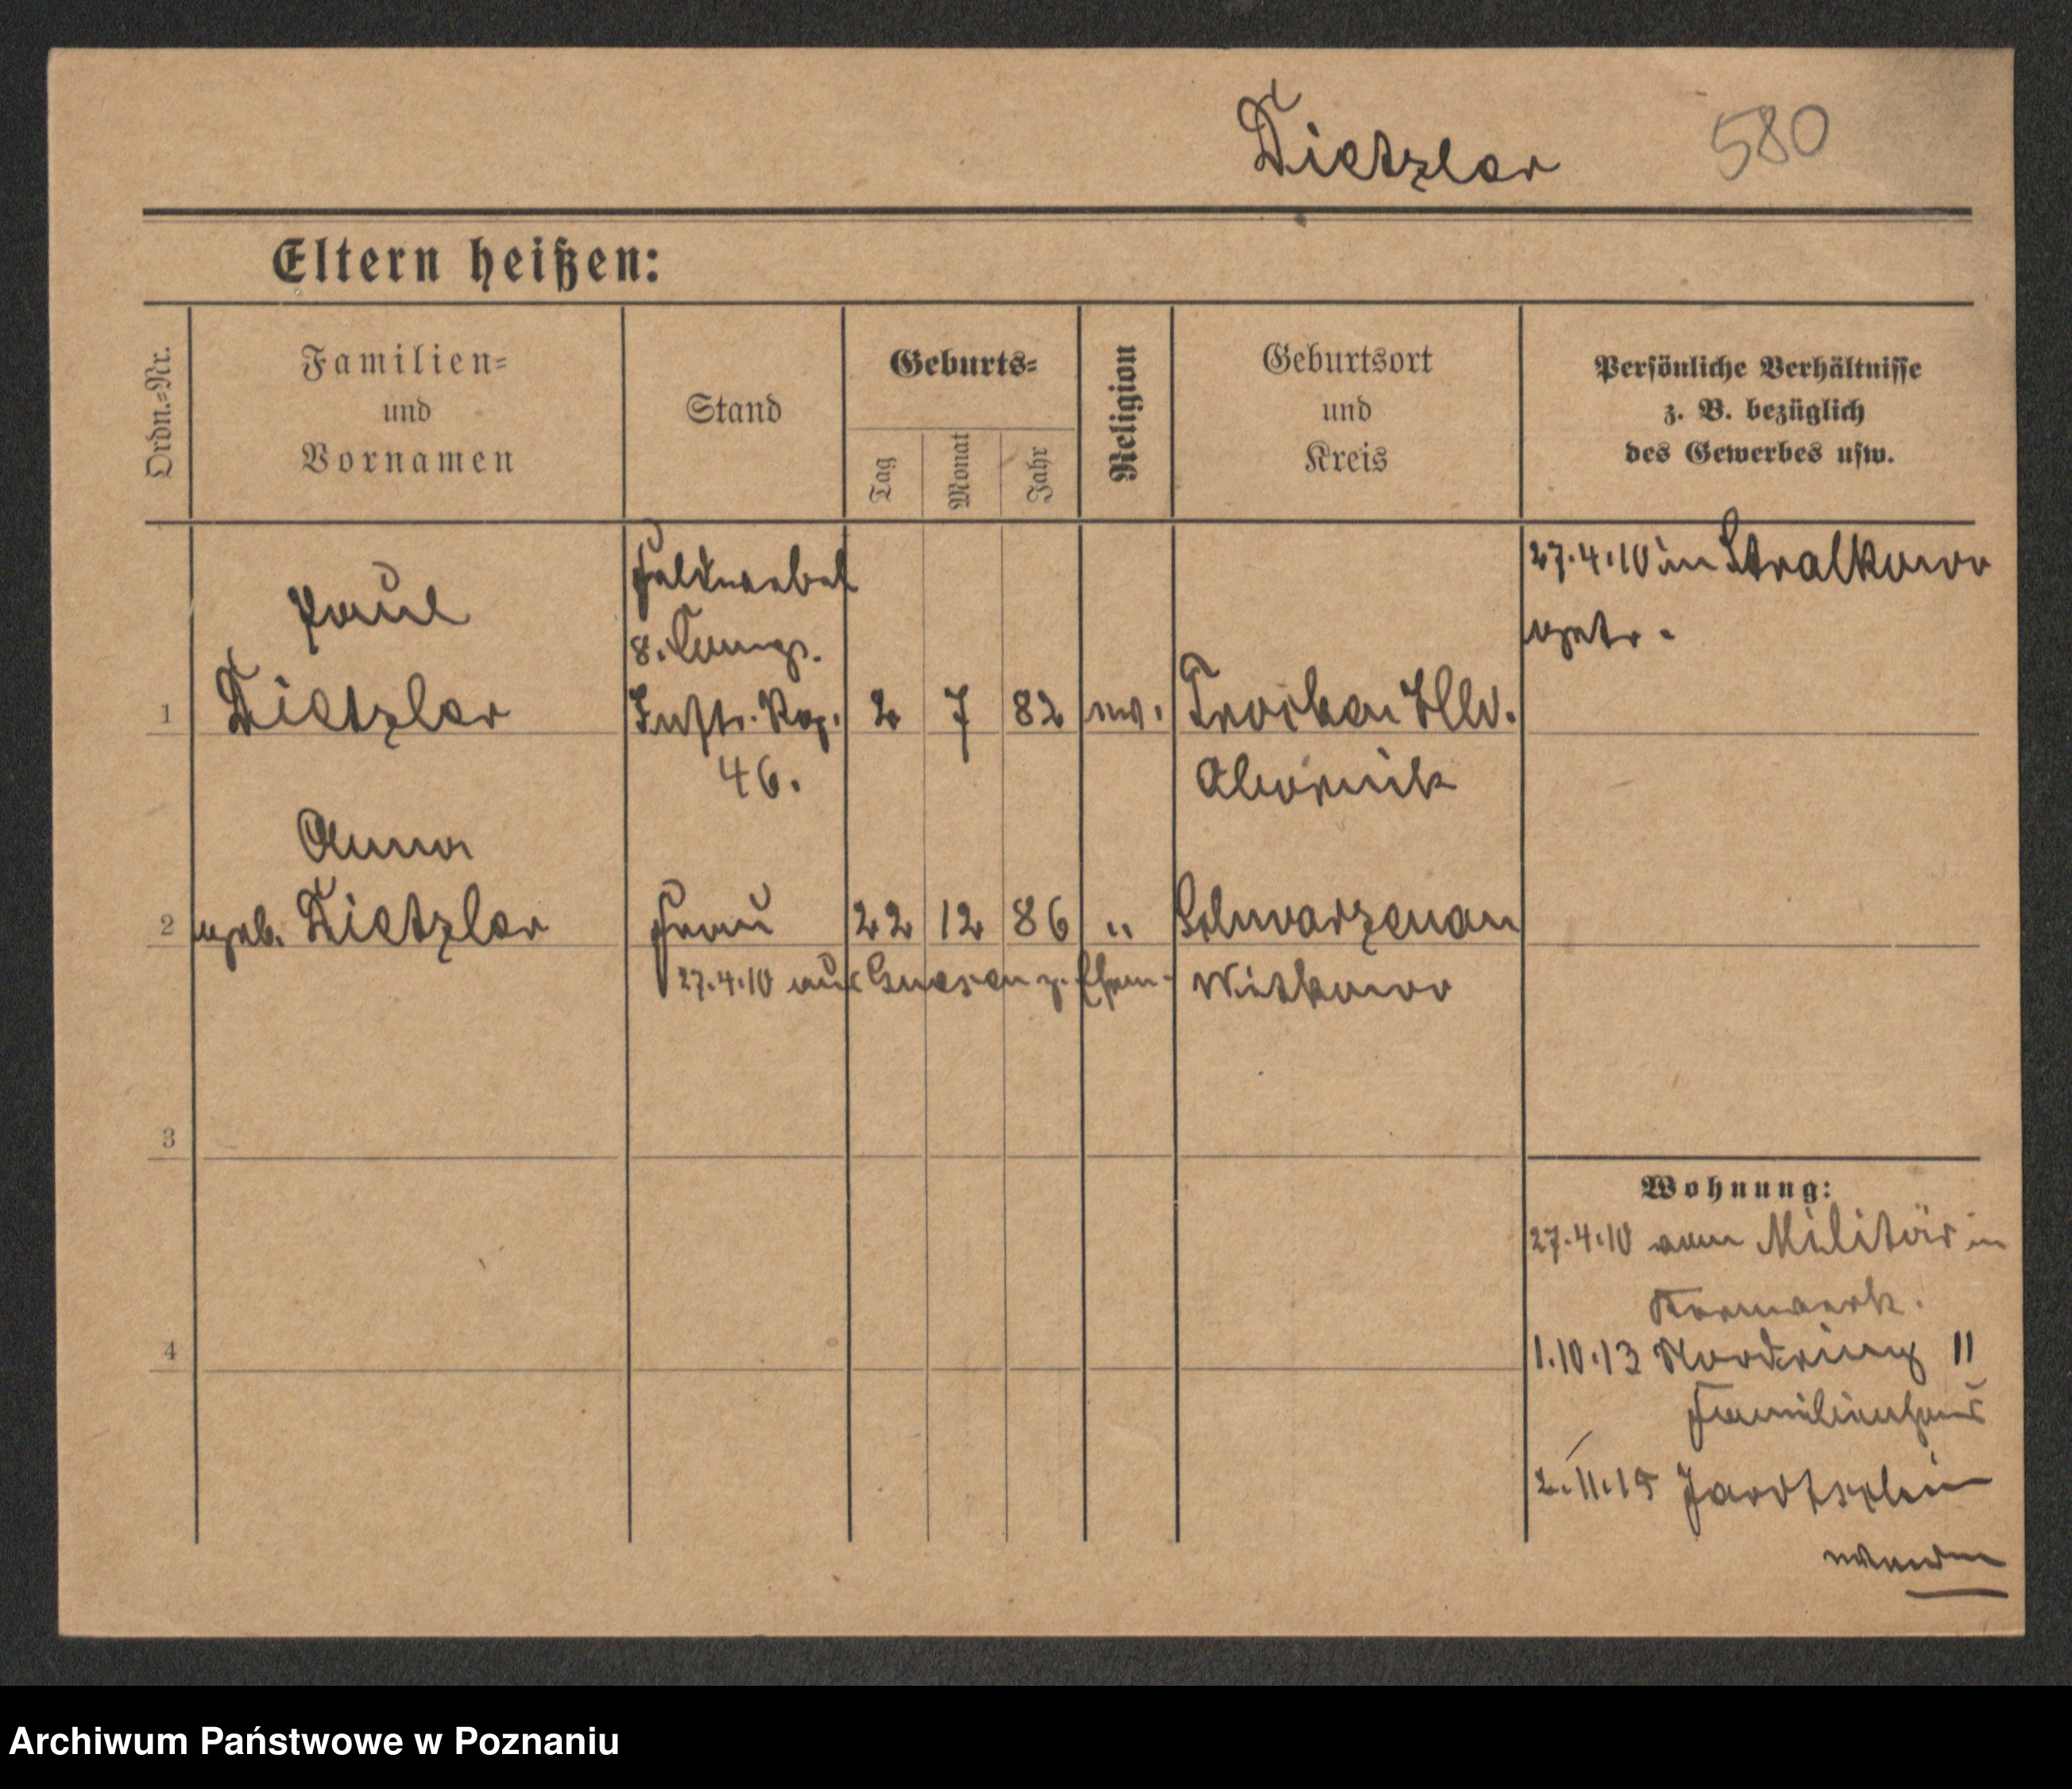 Dietzler 580
Eltern heißen:
Ordn.-Nr.
Familien-
und
Vornamen
Stand
Geburts-
Tag
Monat
Jahr
Religion
Geburtsort
und
Kreis
Persönliche Verhältnisse
z. B. bezüglich
des Gewerbes usw.
Feldwebel
27.4.10 in Stralkowo
Paul
8. Comp.
getr.
1 Dietzler Inftr. Reg. 2 7 82 ev.
46.
Anna
2 geb. Dietzler Frau 22 12 86 " Schwarzenau
27.4.10 aus Gnesen z. Ehem. Witkowo
3
Wohnung:
27.4.10 vom Militär in
Kernwerk.
4
1.10.13 Nordring 11
Familienhaus
2.11.15
Archiwum Państwowe w Poznaniu